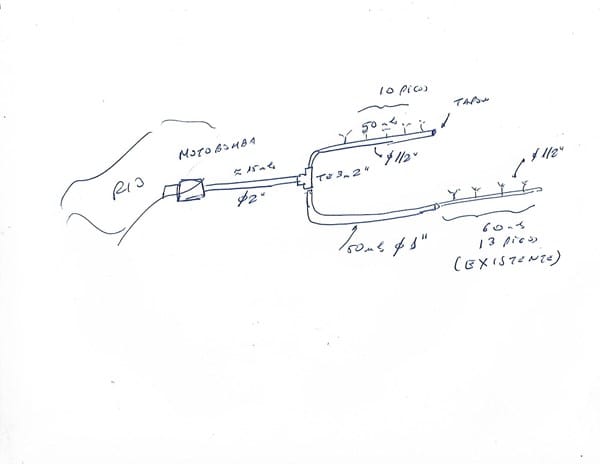 10 PICOS
TAPON
50 mts.
ø 1/2"
MOTOBOMBA
≈ 15 mts
ø 2"
RIO
TE 3 n 2"
50 mts ø 1"
ø 1/2"
60 mts
13 PICOS
(EXISTENTE)